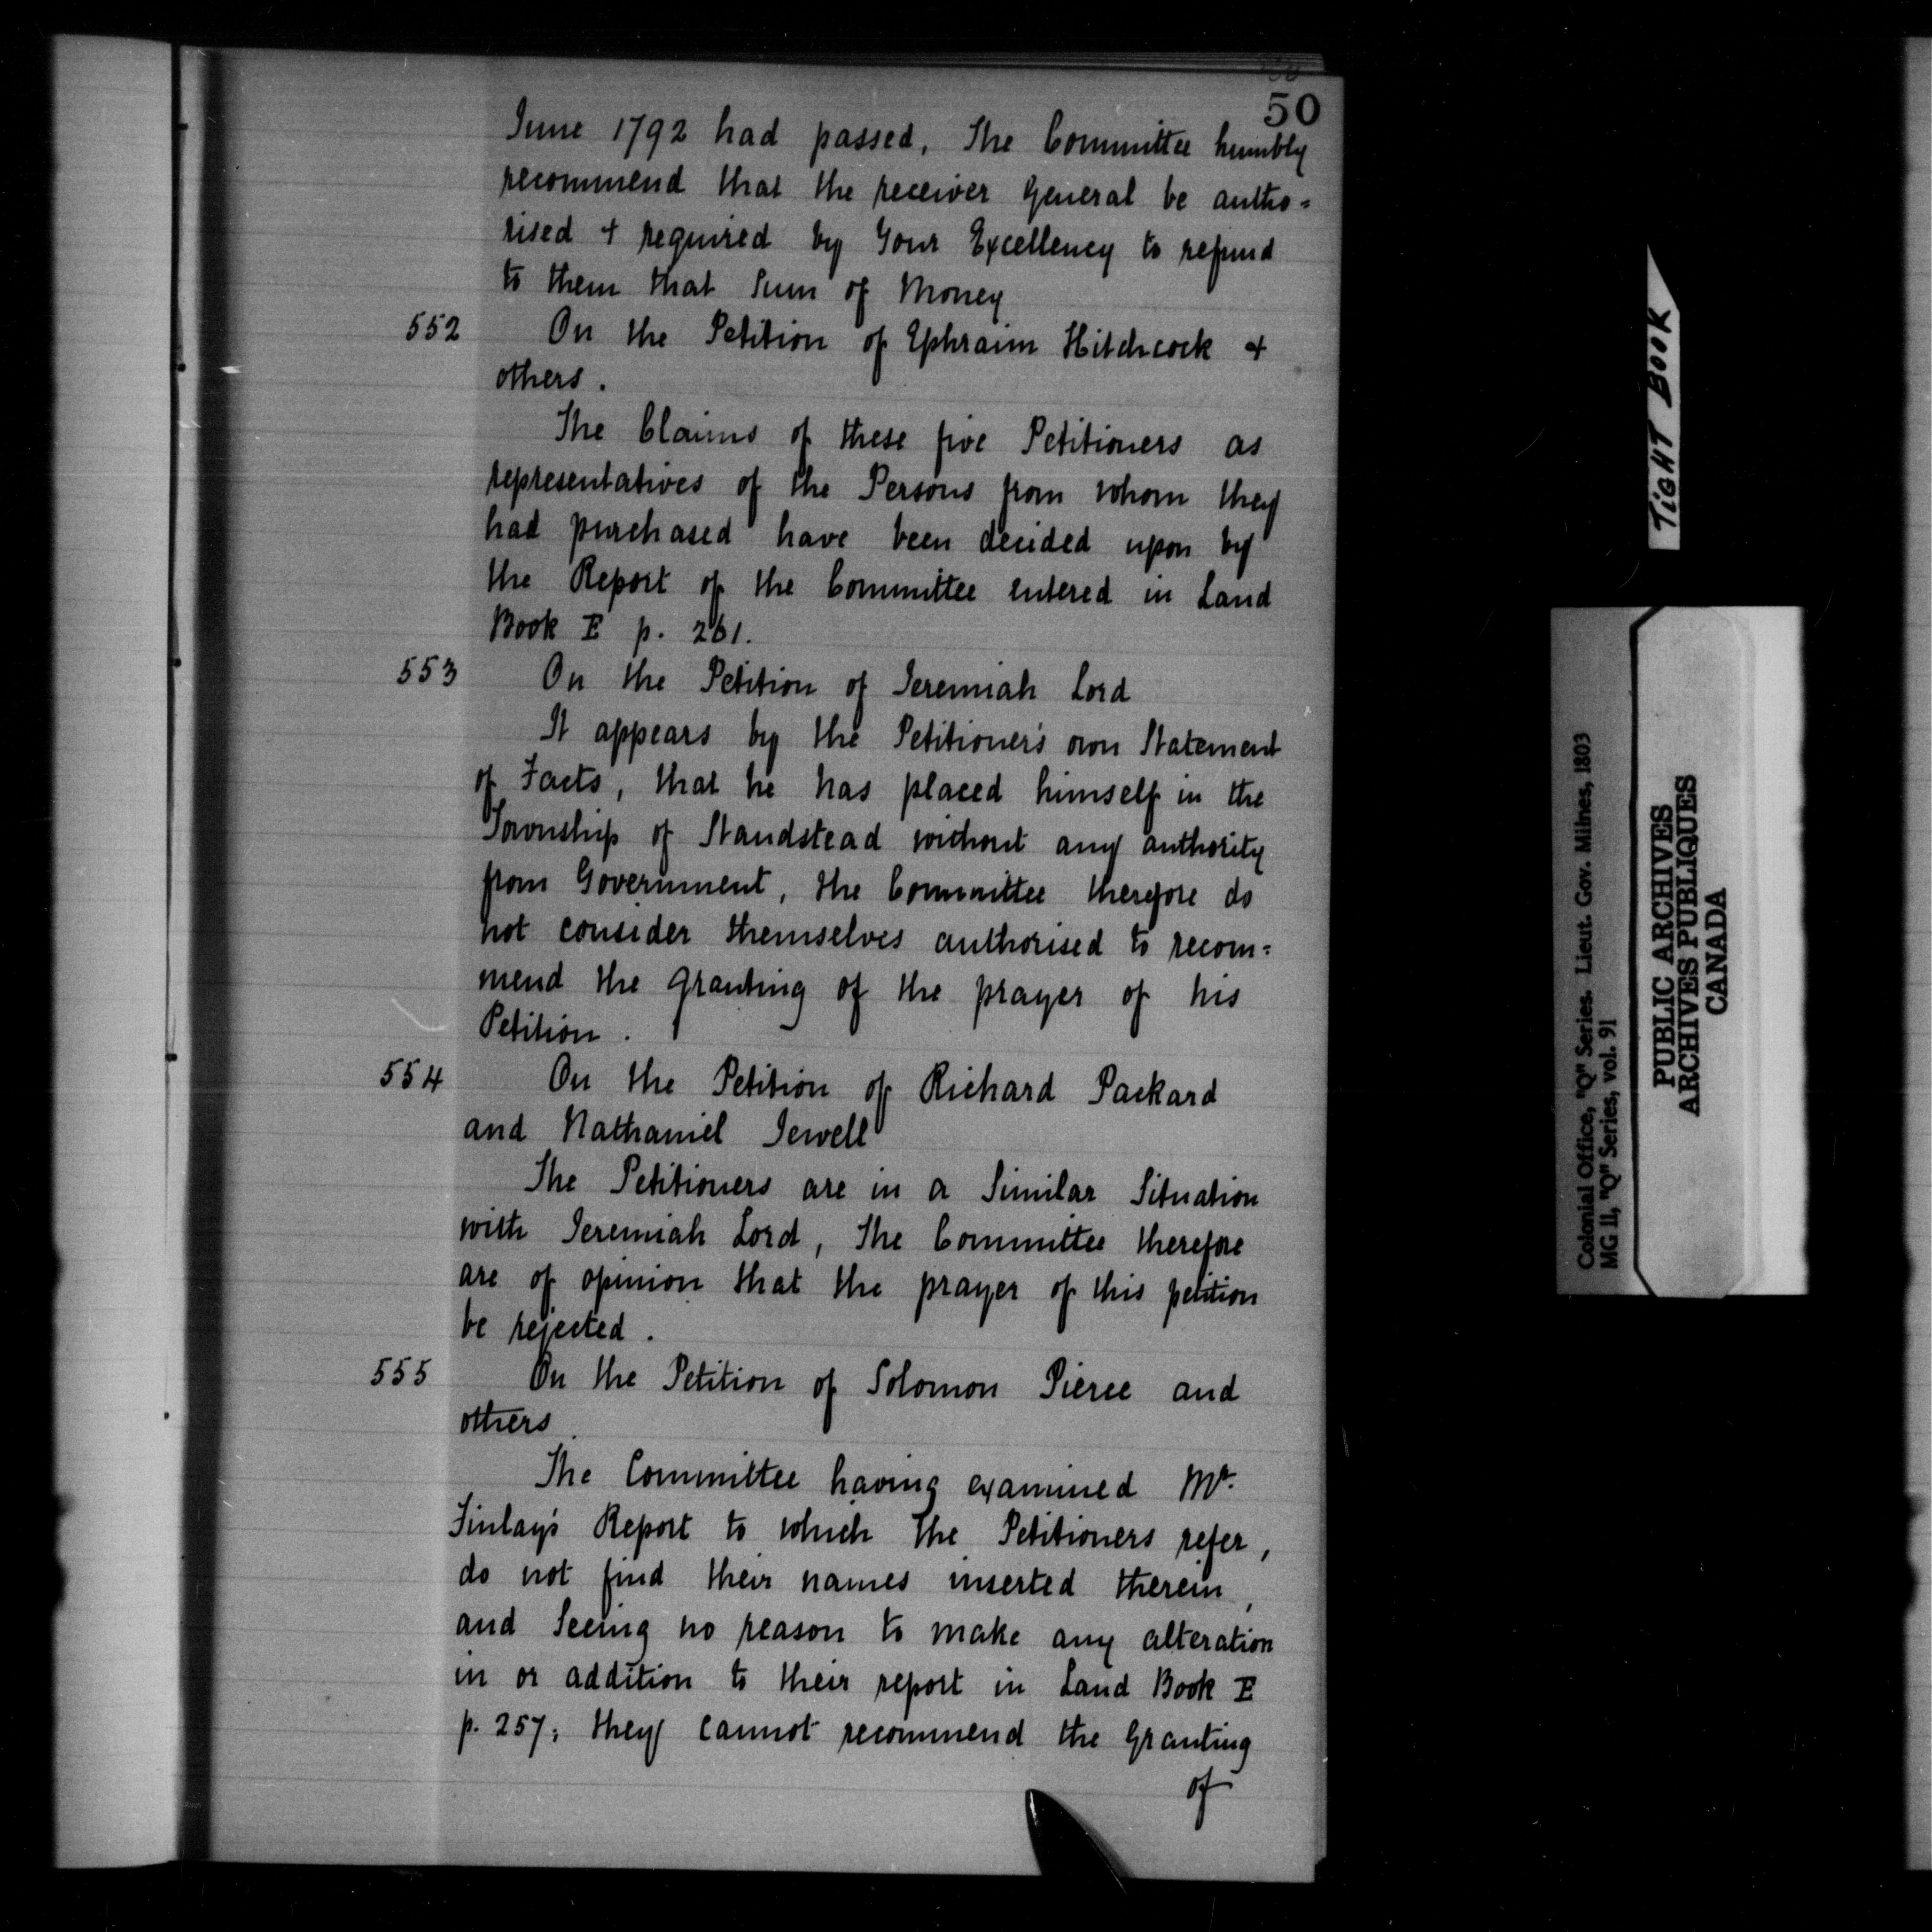 50
June 1792 had passed, The Committee humbly
recommend that the receiver General be autho=
rised & required by Your Excellency to refund
to them that Sum of Money
552 On the Petition of Ephraim Hitchcock &
others.
The Claims of these five Petitioners as
representatives of the Persons from whom they
had purchased have been decided upon by
the Report of the Committee entered in Land
Book E p. 261.
553 On the Petition of Jeremiah Lord
It appears by the Petitioner's own Statement
of Facts, that he has placed himself in the
Township of Standstead without any authority
from Government, the Committee therefore do
not consider themselves authorised to recom=
mend the granting of the prayer of his
Petition.
554 On the Petition of Richard Packard
and Nathaniel Jewell
The Petitioners are in a Similar Situation
with Jeremiah Lord, The Committee therefore
are of opinion that the prayer of this petition
be rejected.
555 On the Petition of Solomon Pierce and
others.
The Committee having examined Mr.
Finlay's Report to which the Petitioners refer,
do not find their names inserted therein,
and Seeing no reason to make any alteration
in or addition to their report in Land Book E
p. 257; they cannot recommend the Granting
of
TIGHT BOOK
Colonial Office, "Q" Series. Lieut. Gov. Milnes, 1803
MG 11, "Q" Series, vol. 91
PUBLIC ARCHIVES
ARCHIVES PUBLIQUES
CANADA